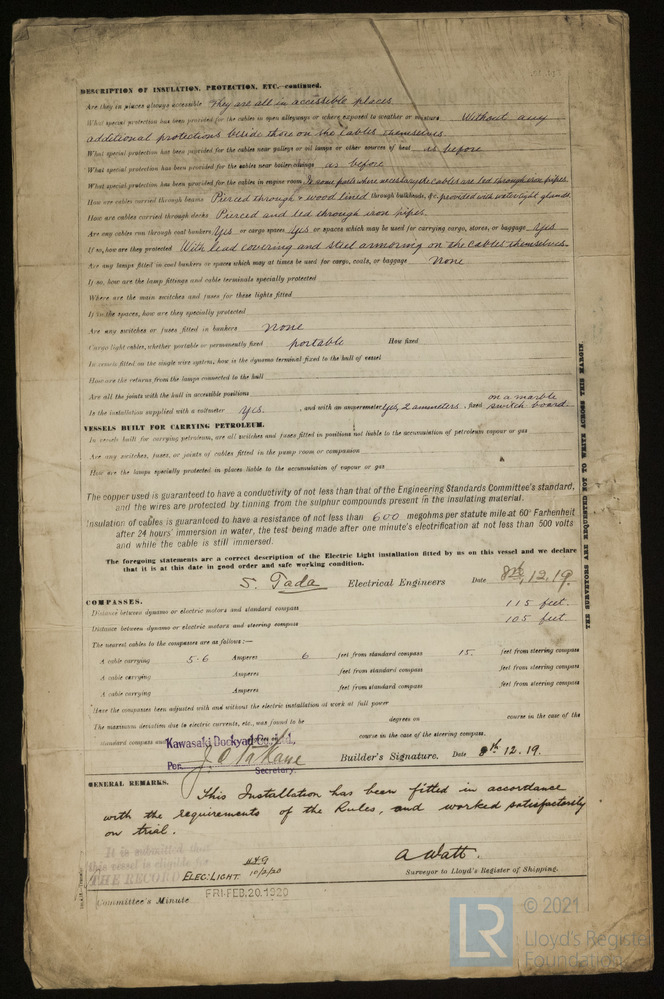 DESCRIPTION OF INSULATION, PROTECTION, ETC.—continued.
Are they in places always accessible They are all in accessible places
What special protection has been provided for the cables in open alleyways or where exposed to weather or moisture Without any
additional protections beside those on the cables themselves
What special protection has been provided for the cables near galleys or oil lamps or other sources of heat as before
What special protection has been provided for the cables near boiler casings as before
What special protection has been provided for the cables in engine room In some parts where necessary the cables are led through iron pipes
How are cables carried through beams Pierced through & wood lined through bulkheads, &c. provided with watertight glands
How are cables carried through decks Pierced and led through iron pipes
Are any cables run through coal bunkers Yes or cargo spaces Yes or spaces which may be used for carrying cargo, stores, or baggage Yes
If so, how are they protected With lead covering and steel armoring on the cables themselves.
Are any lamps fitted in coal bunkers or spaces which may at times be used for cargo, coals, or baggage None
If so, how are the lamp fittings and cable terminals specially protected
Where are the main switches and fuses for these lights fitted
If in the spaces, how are they specially protected
Are any switches or fuses fitted in bunkers None
Cargo light cables, whether portable or permanently fixed portable How fixed
In vessels fitted on the single wire system, how is the dynamo terminal fixed to the hull of vessel
How are the returns from the lamps connected to the hull
Are all the joints with the hull in accessible positions
Is the installation supplied with a voltmeter Yes. , and with an amperemeter Yes, 2 ammeters , fixed on a marble switch board.
VESSELS BUILT FOR CARRYING PETROLEUM.
In vessels built for carrying petroleum, are all switches and fuses fitted in positions not liable to the accumulation of petroleum vapour or gas
Are any switches, fuses, or joints of cables fitted in the pump room or companion
How are the lamps specially protected in places liable to the accumulation of vapour or gas
The copper used is guaranteed to have a conductivity of not less than that of the Engineering Standards Committee's standard,
and the wires are protected by tinning from the sulphur compounds present in the insulating material.
Insulation of cables is guaranteed to have a resistance of not less than 600 megohms per statute mile at 60° Farhenheit
after 24 hours' immersion in water, the test being made after one minute's electrification at not less than 500 volts
and while the cable is still immersed.
The foregoing statements are a correct description of the Electric Light installation fitted by us on this vessel and we declare
that it is at this date in good order and safe working condition.
S. Tada Electrical Engineers Date 8th, 12. 19.
COMPASSES.
Distance between dynamo or electric motors and standard compass 115 feet.
Distance between dynamo or electric motors and steering compass 105 feet
The nearest cables to the compasses are as follows:—
A cable carrying 5.6 Amperes 6 feet from standard compass 15. feet from steering compass
A cable carrying Amperes feet from standard compass feet from steering compass
A cable carrying Amperes feet from standard compass feet from steering compass
Have the compasses been adjusted with and without the electric installation at work at full power
The maximum deviation due to electric currents, etc., was found to be degrees on course in the case of the
standard compass and degrees on course in the case of the steering compass.
Kawasaki Dockyard Co., Ltd.,
Per. Secretary. Builder's Signature. Date 8th. 12. 19.
GENERAL REMARKS.
This Installation has been fitted in accordance
with the requirements of the Rules, and worked satisfactorily
on trial.
It is submitted that
this vessel is eligible for
THE RECORD ELEC: LIGHT 10/2/20
A Watt.
Surveyor to Lloyd's Register of Shipping.
Committee's Minute FRI. FEB. 20. 1920
THE SURVEYORS ARE REQUESTED NOT TO WRITE ACROSS THIS MARGIN.
LR
© 2021
Lloyd's Register
Foundation